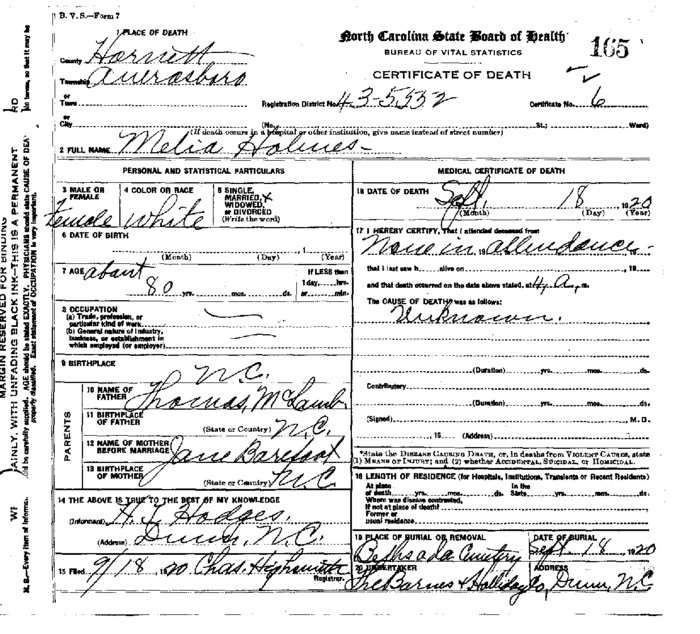 B. V. S.—Form 7
1 PLACE OF DEATH
County Harnett
Township Averasboro
or
Town
or
City
North Carolina State Board of Health
BUREAU OF VITAL STATISTICS
165
CERTIFICATE OF DEATH
Registration District No. 43-5532 Certificate No. 6
(No. St.; Ward)
(If death occurs in a hospital or other institution, give name instead of street number)
2 FULL NAME Melia Holmes
PERSONAL AND STATISTICAL PARTICULARS
3 MALE OR FEMALE
Female
4 COLOR OR RACE
White
5 SINGLE, MARRIED, WIDOWED, or DIVORCED
(Write the word)
6 DATE OF BIRTH
(Month) (Day) (Year)
7 AGE about
80 yrs. mos. ds.
If LESS than
1 day, hrs.
or min.
8 OCCUPATION
(a) Trade, profession, or
particular kind of work
(b) General nature of industry,
business, or establishment in
which employed (or employer)
9 BIRTHPLACE
N.C.
PARENTS
10 NAME OF FATHER Thomas McLamb
11 BIRTHPLACE OF FATHER
(State or Country) N.C.
12 NAME OF MOTHER BEFORE MARRIAGE Jane Barefoot
13 BIRTHPLACE OF MOTHER
(State or Country) N.C.
14 THE ABOVE IS TRUE TO THE BEST OF MY KNOWLEDGE
(Informant) H. Hodges,
(Address) Dunn, N.C.
15 Filed 9/18, 1920 Chas. Highsmith
Registrar.
MEDICAL CERTIFICATE OF DEATH
16 DATE OF DEATH
Sept. 18 1920
(Month) (Day) (Year)
17 I HEREBY CERTIFY, That I attended deceased from
None in attendance
that I last saw h alive on , 19
and that death occurred on the date above stated, at 4 A. m.
The CAUSE OF DEATH* was as follows:
Unknown.
(Duration) yrs. mos. ds.
Contributory
(Duration) yrs. mos. ds.
(Signed) , M. D.
, 19 (Address)
*State the DISEASE CAUSING DEATH, or, in deaths from VIOLENT CAUSES, state
(1) MEANS OF INJURY; and (2) whether ACCIDENTAL, SUICIDAL, or HOMICIDAL.
18 LENGTH OF RESIDENCE (for Hospitals, Institutions, Transients or Recent Residents)
At place In the
of death yrs. mos. ds. State yrs. mos. ds.
Where was disease contracted,
if not at place of death?
Former or
usual residence
19 PLACE OF BURIAL OR REMOVAL
Bethsada Cemetery
DATE OF BURIAL
Sept. 18, 1920
20 UNDERTAKER
The Barnes & Holliday Co,
ADDRESS
Dunn, N.C
MARGIN RESERVED FOR BINDING
AINLY, WITH UNFADING BLACK INK—THIS IS A PERMANENT
N. B.—Every item of informa
ld be carefully supplied. AGE should be stated EXACTLY. PHYSICIANS should state CAUSE OF DEA
properly classified. Exact statement of OCCUPATION is very important.
in terms, so that it may be